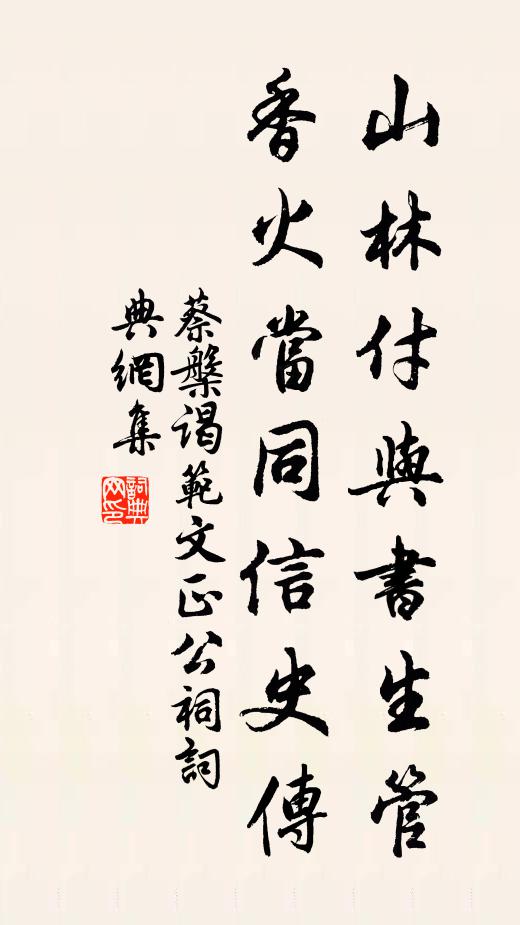 山林付與書生管
香火當同信史傳
蔡槃謁範文正公祠詞
典網集
詞典網印